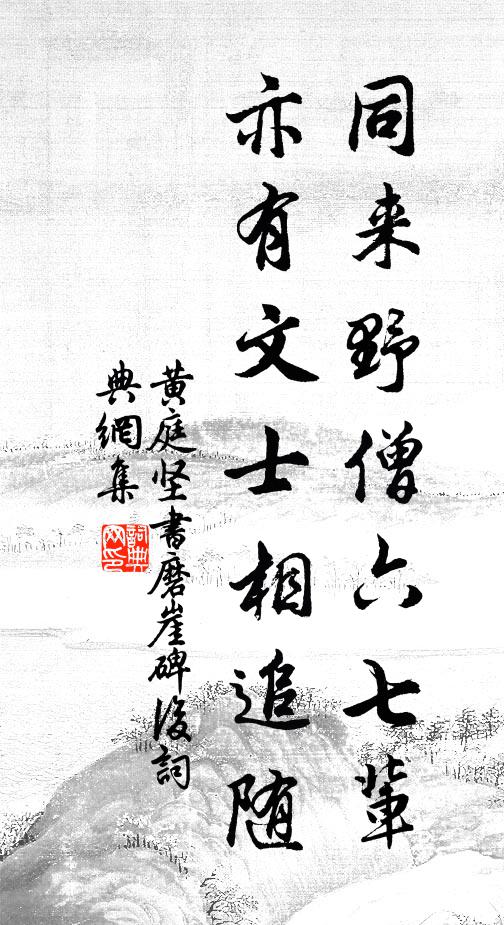 同来野僧六七輩
亦有文士相追随
黄庭坚書磨崖碑後詞
典網集
詞典网印